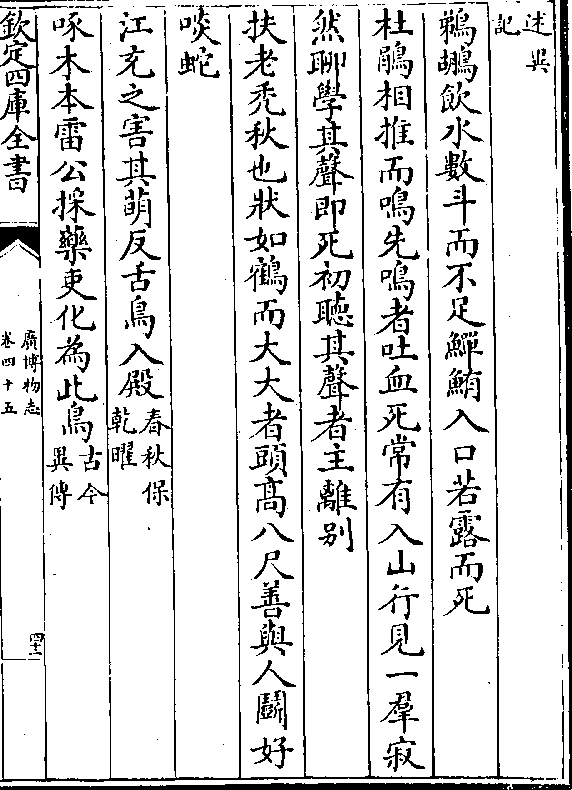 述異
記
鵜鶘飲水數斗而不足鱓鮪入口若露而死
杜鵑相推而鳴先鳴者吐血死常有入山行見一羣寂
然聊學其聲即死初聽其聲者主離别
扶老秃秋也狀如鶴而大大者頭高八尺善與人鬭好
啖蛇
江充之害其萌反舌鳥入殿春秋保
乾曜
啄木本雷公採藥吏化為此鳥古今
異傳
欽定四庫全書
廣博物志
卷四十五
四十一